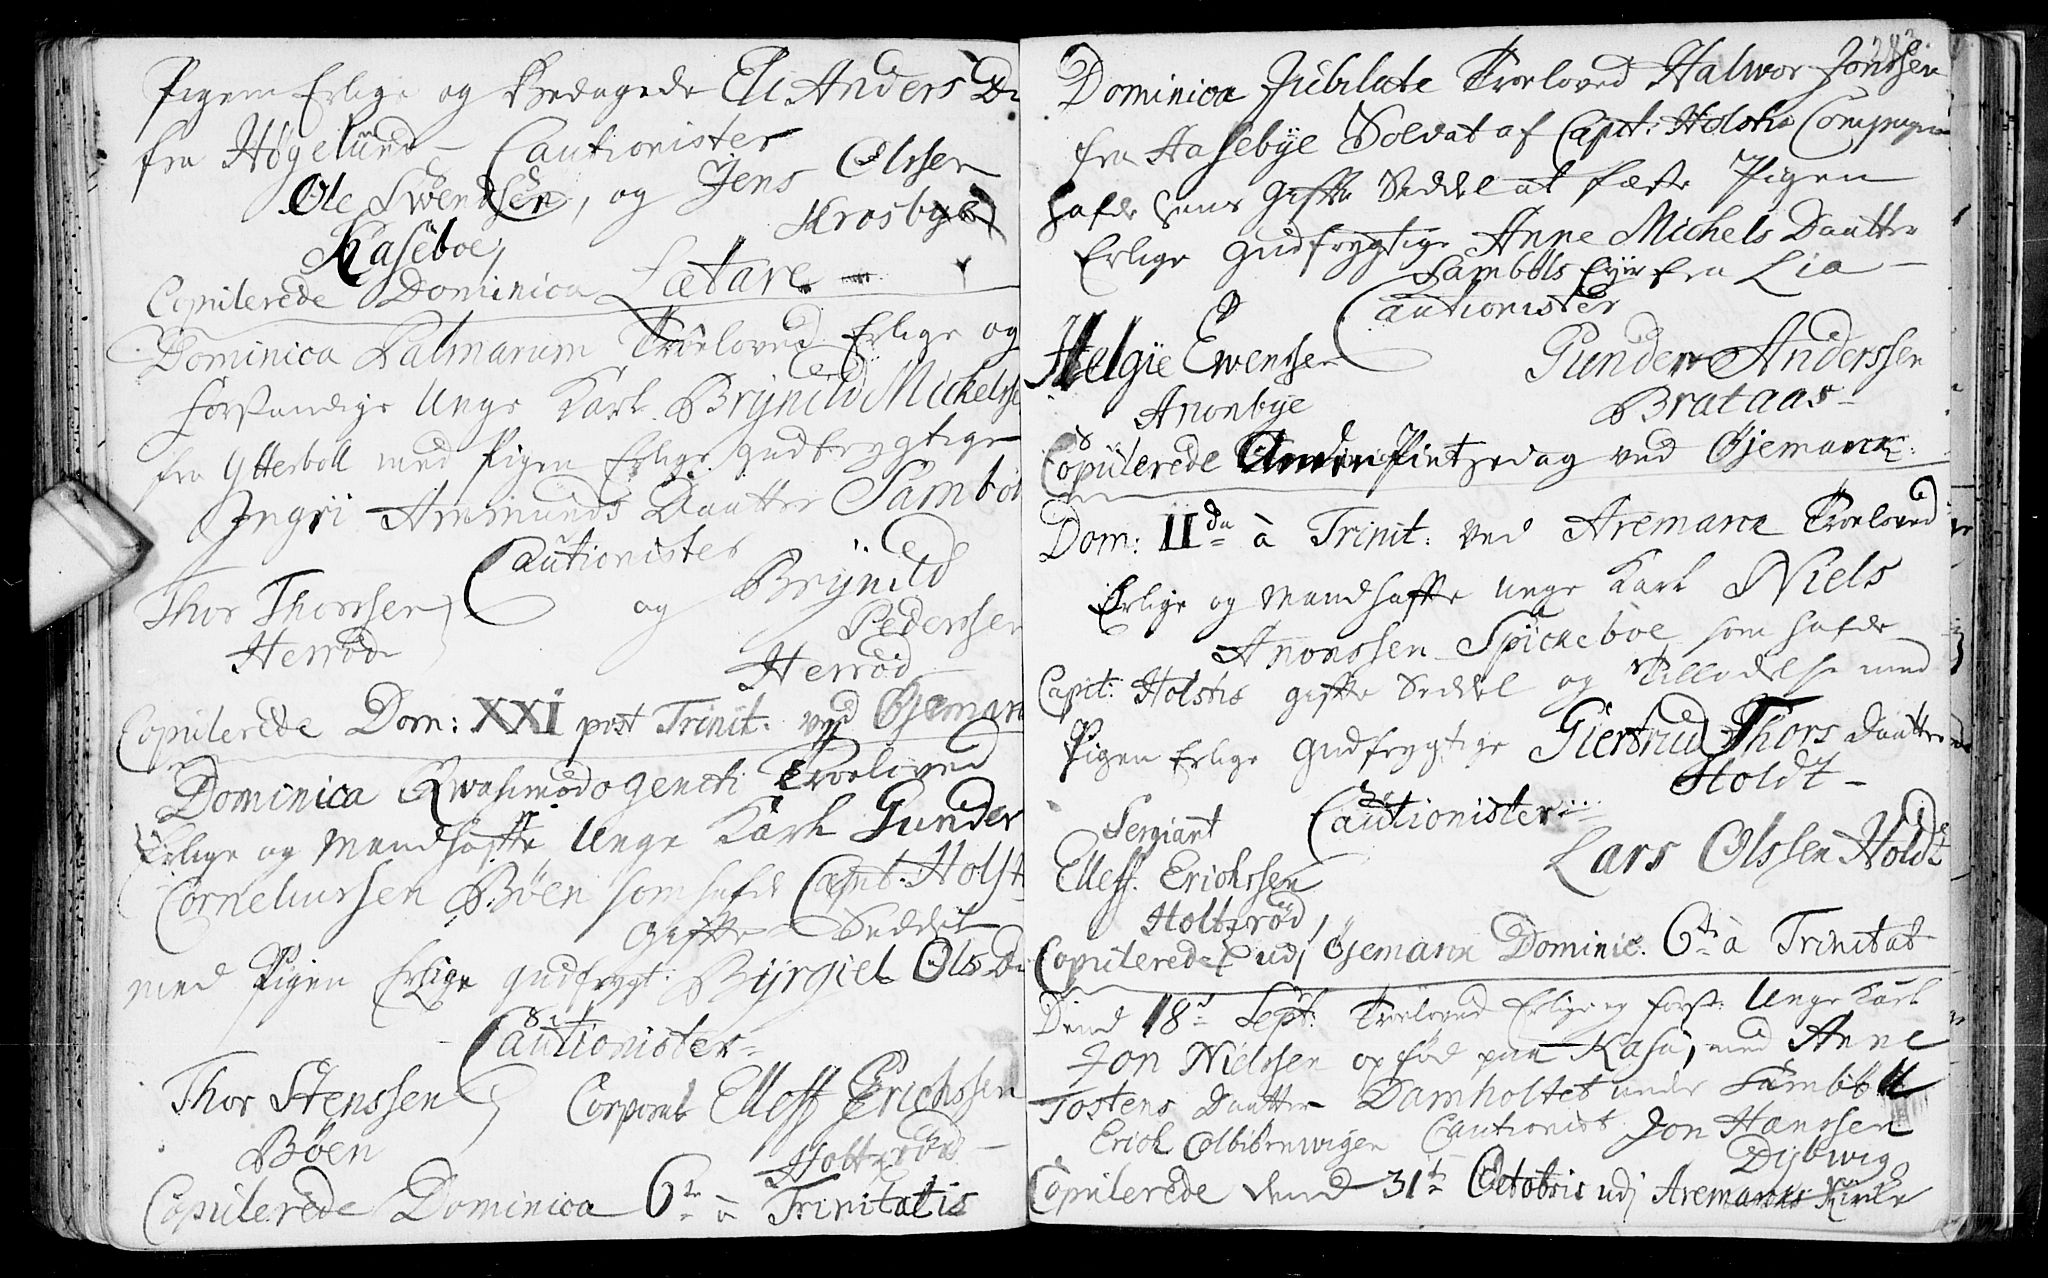 Pigen Erlige og Bedagede Eli Anders D
fra Høgelund – Cautionister
Ole Swendsen, og Jens Olssen
Kaseboe, Krosbye
Copulerede Dominica Lætare –
Dominica Palmarum Troeloved Erlige og
forstandige Unge Karl Brÿnild Michelsse
fra Ytterböll med Pigen Erlige gudfrygtige
Ingri Ammunds Daatter Samböl
Cautionister
Thor Thorssen og Brÿnild
Pederssen
Herröd Herröd
Copulerede Dom: XXI post Trinit: ved Øjemark
Dominica Qwasimodogeneti Troeloved
Erlige og Mandhafte Unge Karl Gunder
Corneliussen Böen som hafde Capit: Holst
Gifte Seddel
med Pigen Erlige gudfrygt: Bÿrgiel Ols D
Cautionister
Thor Stenssen Corporal Elleff Erichssen
Böen Holtzröd –
Copulerede Dominica 6te à Trinitatis
283
Dominica Jubilate Troeloved Halwor Jonssen
fra Hasebye Soldat af Capit: Holsts Compagni
hafde hans Gifte Seddel at fæste Pigen
Erlige gudfrygtige Anne Michels Daatter
Sambøls eyer fra Lia –
Cautionister
Helgie Ewenssen Gunder Anderssen
Anonbye Brataas –
Copulerede Anden Pintzedag ved Øjemarck:
Dom: IIda à Trinit: ved Aremarck Troeloved
Erlige og Mandhafte Unge Karl Niels
Anonssen Spickeboe som hafde
Capit: Holsts gifte Seddel og Tilladelse med
Pigen Erlige Gudfrygtige Giertrud Thors Daatter
Holdt –
Sergiant Cautionister
Elleff. Erichssen Lars Olssen Holdt
Holtzröd
Copulerede udj Øjemarck Dominic. 6te à Trinitat
Dend 18de Sept: Troeloved Erlige og forst: Unge Karl
Jon Nielssen opfød paa Kasa, med Anne
Tostens Daatter Damholtet under Samböll
Erich Colbiörnwigen Cautionist Jon Hanssen
Dÿbwig
Copulerede dend 31te Octobris udj Aremarks Kirke